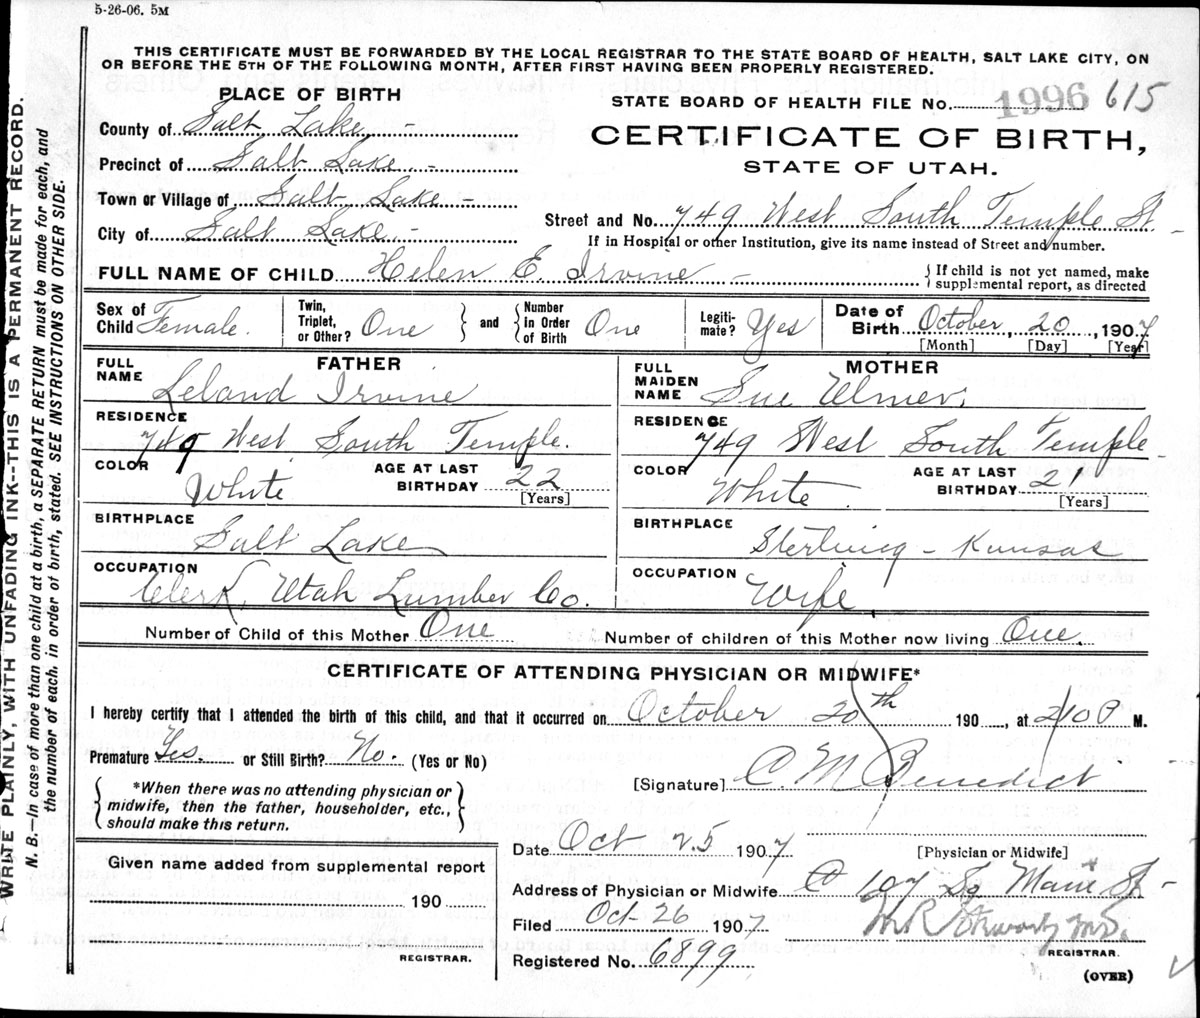 5-26-06. 5M
THIS CERTIFICATE MUST BE FORWARDED BY THE LOCAL REGISTRAR TO THE STATE BOARD OF HEALTH, SALT LAKE CITY, ON
OR BEFORE THE 5TH OF THE FOLLOWING MONTH, AFTER FIRST HAVING BEEN PROPERLY REGISTERED.
PLACE OF BIRTH
STATE BOARD OF HEALTH FILE No. 1996 615
County of Salt Lake
CERTIFICATE OF BIRTH,
Precinct of Salt Lake
STATE OF UTAH.
Town or Village of Salt Lake
Street and No. 749 West South Temple St.
City of Salt Lake
If in Hospital or other Institution, give its name instead of Street and number.
FULL NAME OF CHILD Helen E. Irvine
If child is not yet named, make
supplemental report, as directed
Sex of Child Female.
Twin, Triplet, or Other? One
and Number in Order of Birth One
Legiti-mate? Yes
Date of Birth October, 20, 1907
[Month] [Day] [Year]
FATHER
FULL NAME Leland Irvine
RESIDENCE 749 West South Temple.
COLOR White
AGE AT LAST BIRTHDAY 22 [Years]
BIRTHPLACE Salt Lake
OCCUPATION Clerk, Utah Lumber Co.
MOTHER
FULL MAIDEN NAME Sue Ulmer.
RESIDENCE 749 West South Temple
COLOR White
AGE AT LAST BIRTHDAY 21 [Years]
BIRTHPLACE Sterling - Kansas
OCCUPATION Wife.
Number of Child of this Mother One
Number of children of this Mother now living One.
CERTIFICATE OF ATTENDING PHYSICIAN OR MIDWIFE*
I hereby certify that I attended the birth of this child, and that it occurred on October 20th 190 , at 2/10 P M.
Premature Yes. or Still Birth? No. (Yes or No)
[Signature] C M Benedict
*When there was no attending physician or
midwife, then the father, householder, etc.,
should make this return.
Date Oct 25 1907
[Physician or Midwife]
Given name added from supplemental report
190
REGISTRAR.
Address of Physician or Midwife 107 So Main St
Filed Oct-26 1907
Registered No. 6899
REGISTRAR.
(OVER)
WRITE PLAINLY, WITH UNFADING INK--THIS IS A PERMANENT RECORD.
N. B.—In case of more than one child at a birth, a SEPARATE RETURN must be made for each, and
the number of each, in order of birth, stated. SEE INSTRUCTIONS ON OTHER SIDE.